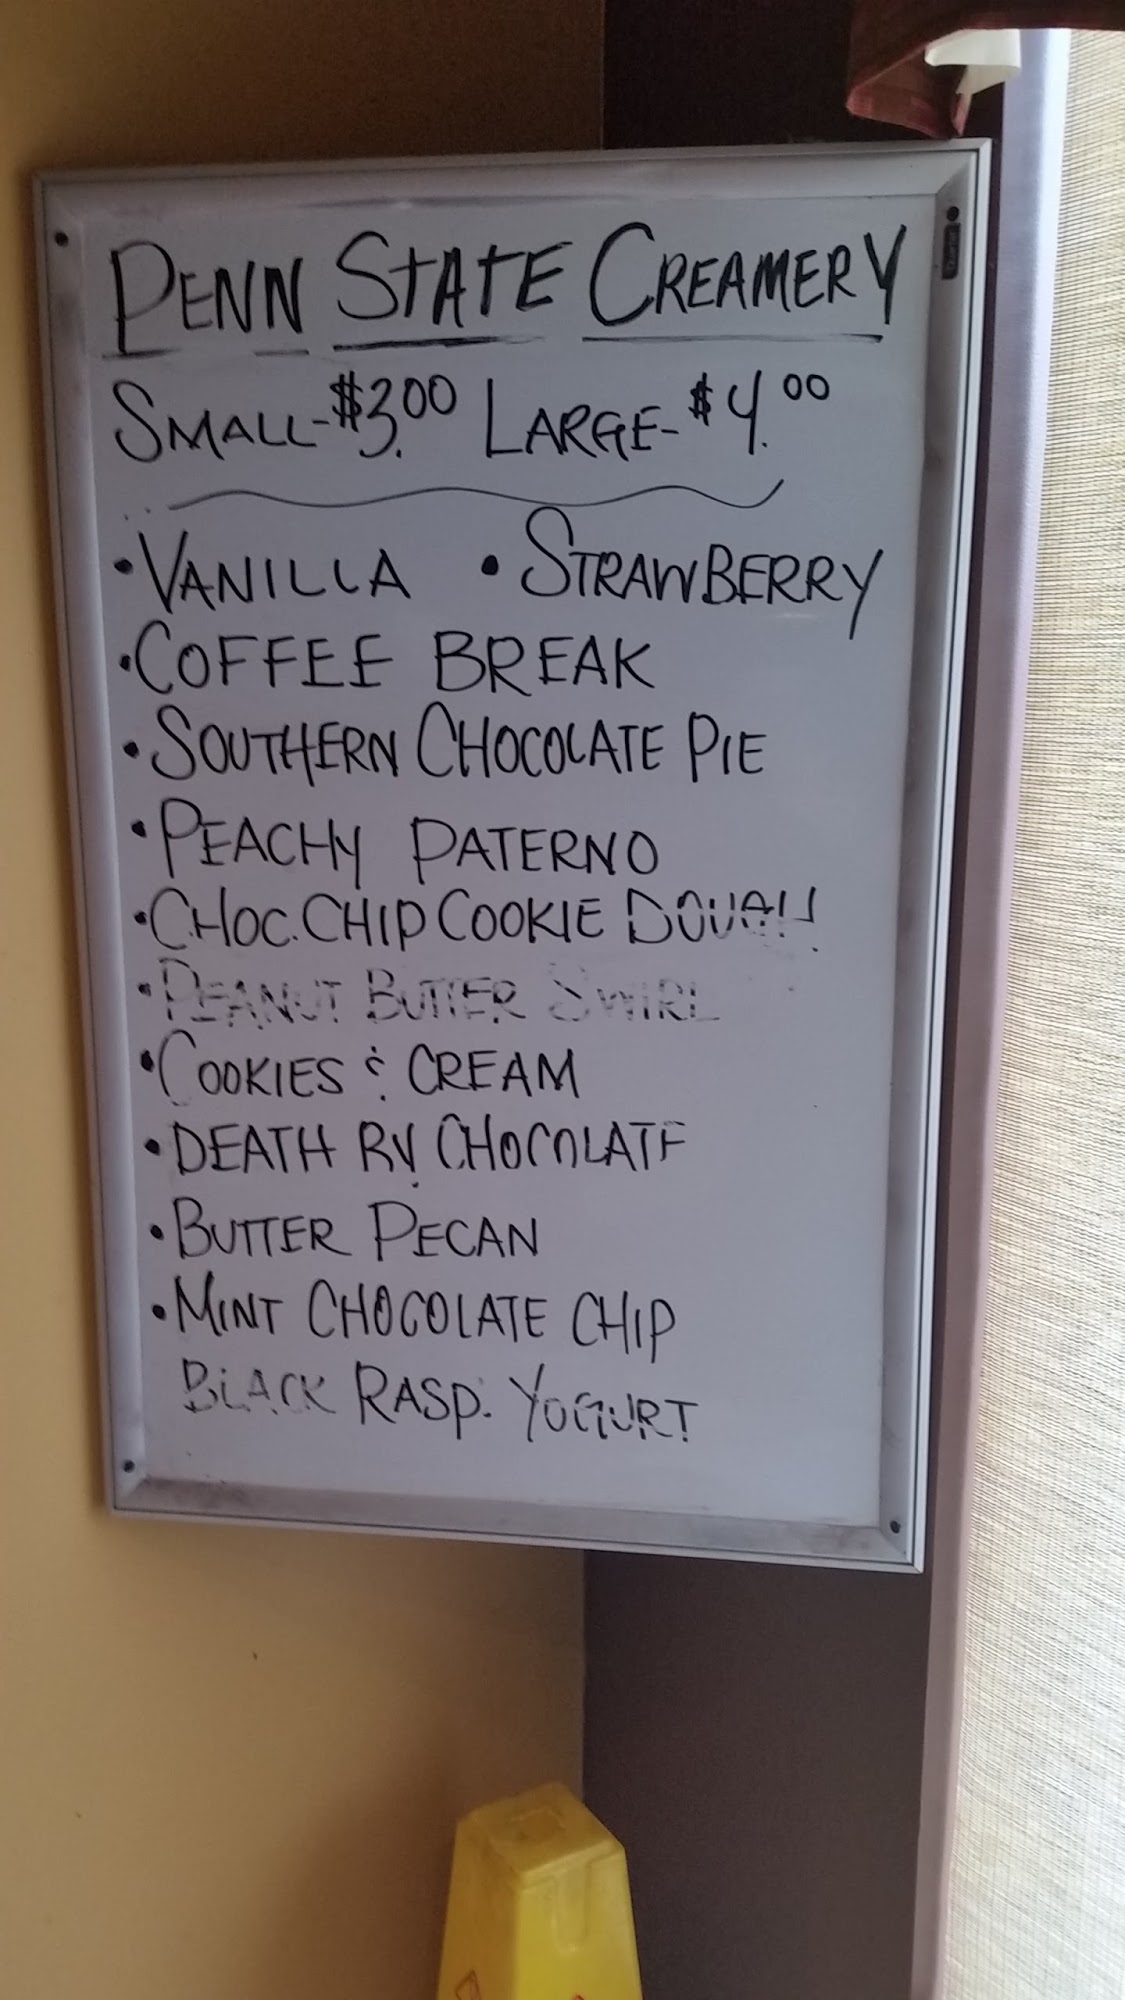 PENN STATE CREAMERY
SMALL-$3.00 LARGE-$4.00
•VANILLA •STRAWBERRY
•COFFEE BREAK
•SOUTHERN CHOCOLATE PIE
•PEACHY PATERNO
•CHOC. CHIP COOKIE DOUGH
•PEANUT BUTTER SWIRL
•COOKIES & CREAM
•DEATH BY CHOCOLATE
•BUTTER PECAN
•MINT CHOCOLATE CHIP
BLACK RASP. YOGURT